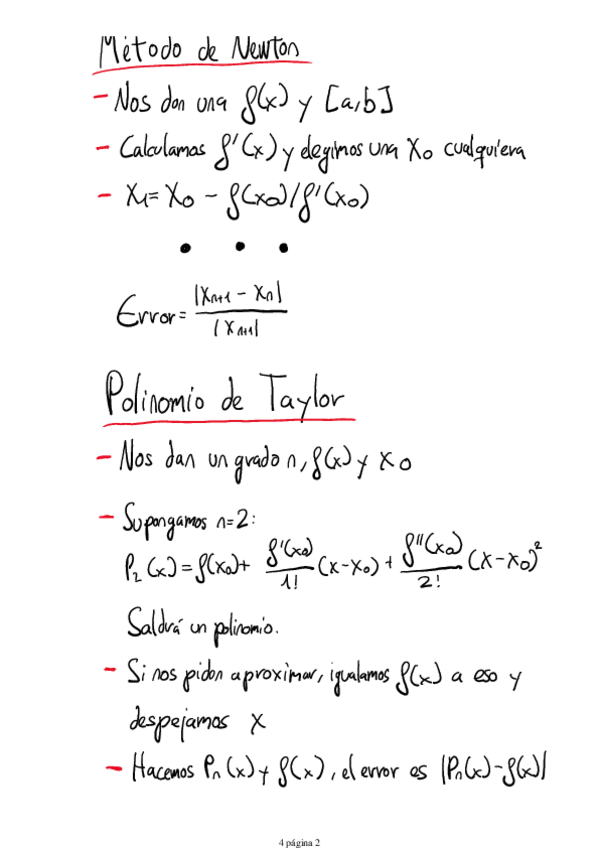 Método de Newton
- Nos dan una f(x) y [a,b]
- Calculamos f'(x) y elegimos una x0 cualquiera
- x1 = x0 - f(x0)/f'(x0)
• • •
Error = |xn+1 - xn| / |xn+1|
Polinomio de Taylor
- Nos dan un grado n, f(x) y x0
- Supongamos n=2:
P2(x) = f(x0) + f'(x0)/1! (x-x0) + f''(x0)/2! (x-x0)²
Saldrá un polinomio.
- Si nos piden aproximar, igualamos f(x) a eso y
despejamos x
- Hacemos Pn(x) y f(x), el error es |Pn(x)-f(x)|
4 página 2